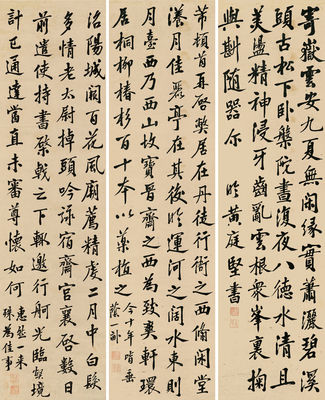 寄嶽雲安九夏無閑緣實蕭灑碧溪
頭古松下臥槃院晝復夜八德水清且
美盪精神浸牙齒亂雲根衆峯裏掬
與斟隨器尔 黃庭堅書
芾頓首再啓弊居在丹徒行衙之西脩閑堂
漾月佳麗亭在其後臨運河之闊水東則
月臺西乃西山故寶晉齋之西為致爽軒環
居桐柳椿杉百十本以藥植之
今十年皆垂
蔭一
洛陽城闕百花風廟薦精虔二月中白髮
多情老太尉掉頭吟詠宿齋宫襄啓數日
前遣使持書棨戟之下輒邀行舸光臨敝境
計已通達當直未審尊懷如何
惠然一来
殊為佳事